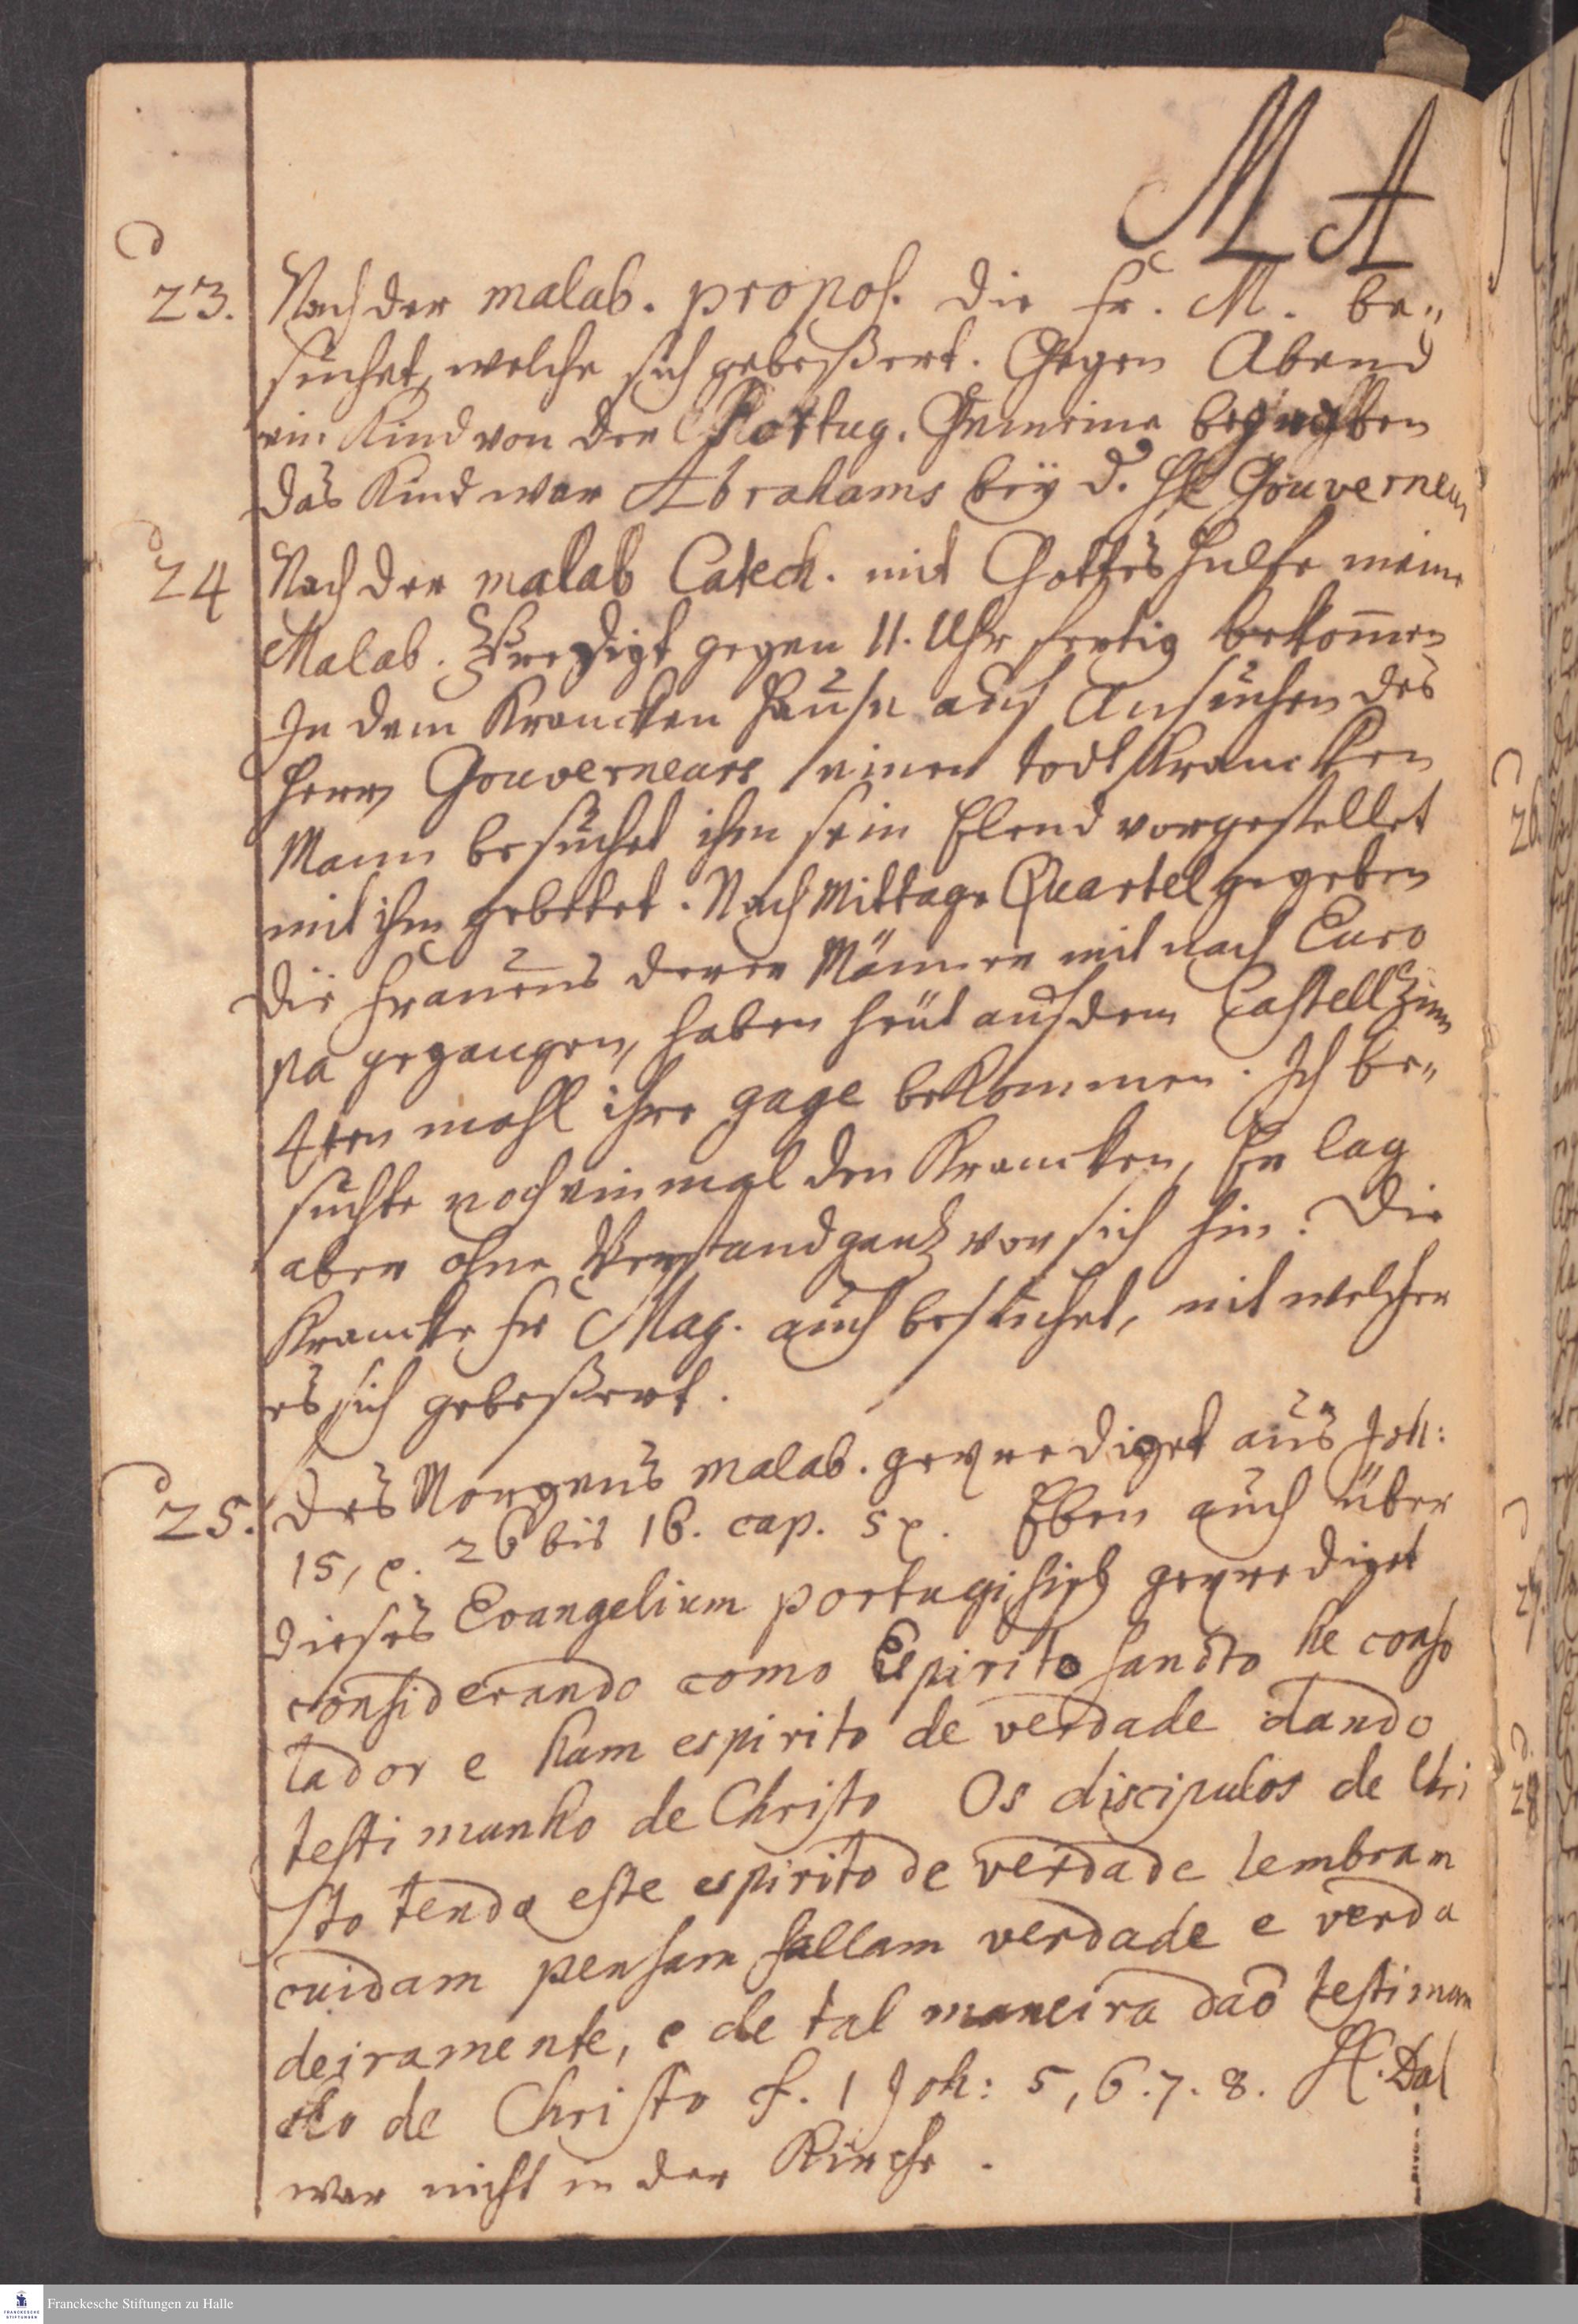 MA
d
23. Nach der malab. propos. die Fr. M. be„
suchet, welche sich gebeßert. Gegen Abend
ein Kind von der Portug. Gemeine begraben
das Kind war Abrahams bey d. H Gouverneur
d
24 Nach der malab Catech. mit Gottes Hülfe meine
Malab. Predigt gegen 11. Uhr fertig bekom̄en
In dem Krancken Hause auf Ansuchen des
Herrn Gouverneurs einen todt Krancken
Mann besuchet ihm sein Elend vorgestellet
mit ihm gebetet. Nach Mittage Quartel gegeben
Die Frauens deren Männer mit nach Euro
pa gegangen, haben heut auf dem Castell zum
4ten mahl ihre gage bekommen. Ich be„
suchte noch einmal den Krancken, Er lag
aber ohne Verstand gantz vor sich hin. Die
Krancke Fr Mag. auch besuchet, mit welcher
es sich gebeßert.
d
25. Des Morgens malab. geprediget aus Joh:
15, v. 26 bis 16. cap. 5 v. Eben auch über
dieses Evangelium portugisisch geprediget
considerando como Espirito sancto he conso
lador e hum espirito de verdade dando
testimunho de Christo Os discipulos de Chri
sto tendo este espirito de verdade lembram
cuidam pensam fallam verdade e verda
deiramente, e de tal maneira daõ testimun
ho de Christo cf. 1 Joh: 5, 6. 7. 8. H. Dal
war nicht in der Kirche.
26.
27.
28
Franckesche Stiftungen zu Halle
FRANCKESCHE
STIFTUNGEN